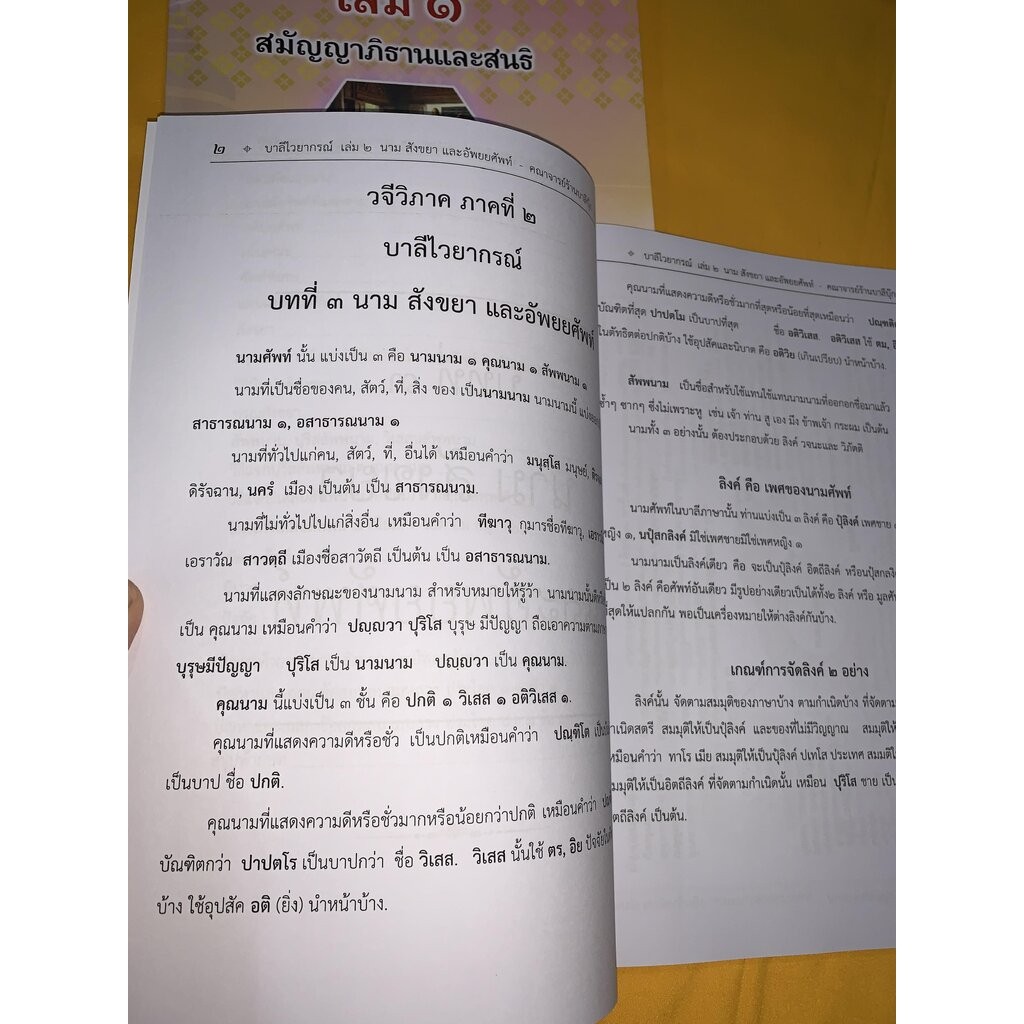 เล่ม ๑
สมัญญาภิธานและสนธิ
๒ บาลีไวยากรณ์ เล่ม ๒ นาม สังขยา และอัพยยศัพท์ - คณาจารย์ร้านบาลี
วจีวิภาค ภาคที่ ๒
บาลีไวยากรณ์
บทที่ ๓ นาม สังขยา และอัพยยศัพท์
นามศัพท์ นั้น แบ่งเป็น ๓ คือ นามนาม ๑ คุณนาม ๑ สัพพนาม ๑
นามที่เป็นชื่อของคน, สัตว์, ที่, สิ่ง ของ เป็นนามนาม นามนามนี้
สาธารณนาม ๑, อสาธารณนาม ๑
นามที่ทั่วไปแก่คน, สัตว์, ที่, อื่นได้ เหมือนคำว่า มนุสฺโส มนุษย์,
ดิรัจฉาน, นครํ เมือง เป็นต้น เป็น สาธารณนาม.
นามที่ไม่ทั่วไปไปแก่สิ่งอื่น เหมือนคำว่า ทีฆาวุ กุมารชื่อทีฆาวุ,
เอราวัณ สาวตฺถี เมืองชื่อสาวัตถี เป็นต้น เป็น อสาธารณนาม.
นามที่แสดงลักษณะของนามนาม สำหรับหมายให้รู้ว้า นามนามนั้น
เป็น คุณนาม เหมือนคำว่า ปญฺญวา ปุริโส บุรุษ มีปัญญา ถือเอาความตาม
บุรุษมีปัญญา ปุริโส เป็น นามนาม ปญฺญวา เป็น คุณนาม.
คุณนาม นี้แบ่งเป็น ๓ ชั้น คือ ปกติ ๑ วิเสส ๑ อติวิเสส ๑.
คุณนามที่แสดงความดีหรือชั่ว เป็นปกติเหมือนคำว่า ปณฺฑิโต
เป็นบาป ชื่อ ปกติ.
คุณนามที่แสดงความดีหรือชั่วมากหรือน้อยกว่าปกติ เหมือนคำว่า
บัณฑิตกว่า ปาปตโร เป็นบาปกว่า ชื่อ วิเสส. วิเสส นั้นใช้ ตร, อิย ปัจจัย
บ้าง ใช้อุปสัค อติ (ยิ่ง) นำหน้าบ้าง.
บาลีไวยากรณ์ เล่ม ๒ นาม สังขยา และอัพยยศัพท์ - คณาจารย์ร้านบาลีบุ๊ก
คุณนามที่แสดงความดีหรือชั่วมากที่สุดหรือน้อยที่สุดเหมือนว่า
บัณฑิตที่สุด ปาปตโม เป็นบาปที่สุด ชื่อ อติวิเสส. อติวิเสส ใช้ ตม,
ในตัทธิตต่อปกติบ้าง ใช้อุปสัคและนิบาต คือ อติวิย (เกินเปรียบ) นำหน้าบ้าง.
สัพพนาม เป็นชื่อสำหรับใช้แทนใช้แทนนามนามที่ออกอกชื่อมาแล้ว
ซ้ำๆ ซากๆ ซึ่งไม่เพราะหู เช่น เจ้า ท่าน สู เอง มึง ข้าพเจ้า กระผม เป็นต้น
นามทั้ง ๓ อย่างนั้น ต้องประกอบด้วย ลิงค์ วจนะและ วิภัตติ
ลิงค์ คือ เพศของนามศัพท์
นามศัพท์ในบาลีภาษานั้น ท่านแบ่งเป็น ๓ ลิงค์ คือ ปุํลิงค์ เพศชาย
หญิง ๑, นปุํสกลิงค์ มิใช่เพศชายมิใช่เพศหญิง ๑
นามนามเป็นลิงค์เดียว คือ จะเป็นปุํลิงค์ อิตถีลิงค์ หรือนปุํสกลิงค์
เป็น ๒ ลิงค์ คือศัพท์อันเดียว มีรูปอย่างเดียวเป็นได้ทั้ง๒ ลิงค์ หรือ มูลศัพท์
ที่สุดให้แปลกกัน พอเป็นเครื่องหมายให้ต่างลิงค์กันบ้าง.
เกณฑ์การจัดลิงค์ ๒ อย่าง
ลิงค์นั้น จัดตามสมมุติของภาษาบ้าง ตามกำเนิดบ้าง ที่จัดตาม
กำเนิดสตรี สมมุติให้เป็นปุํลิงค์ และของที่ไม่มีวิญญาณ สมมุติให้
เหมือนคำว่า ทาโร เมีย สมมุติให้เป็นปุํลิงค์ ปเทโส ประเทศ สมมติ
สมมุติให้เป็นอิตถีลิงค์ ที่จัดตามกำเนิดนั้น เหมือน ปุริโส ชาย เป็น
อิตถีลิงค์ เป็นต้น.